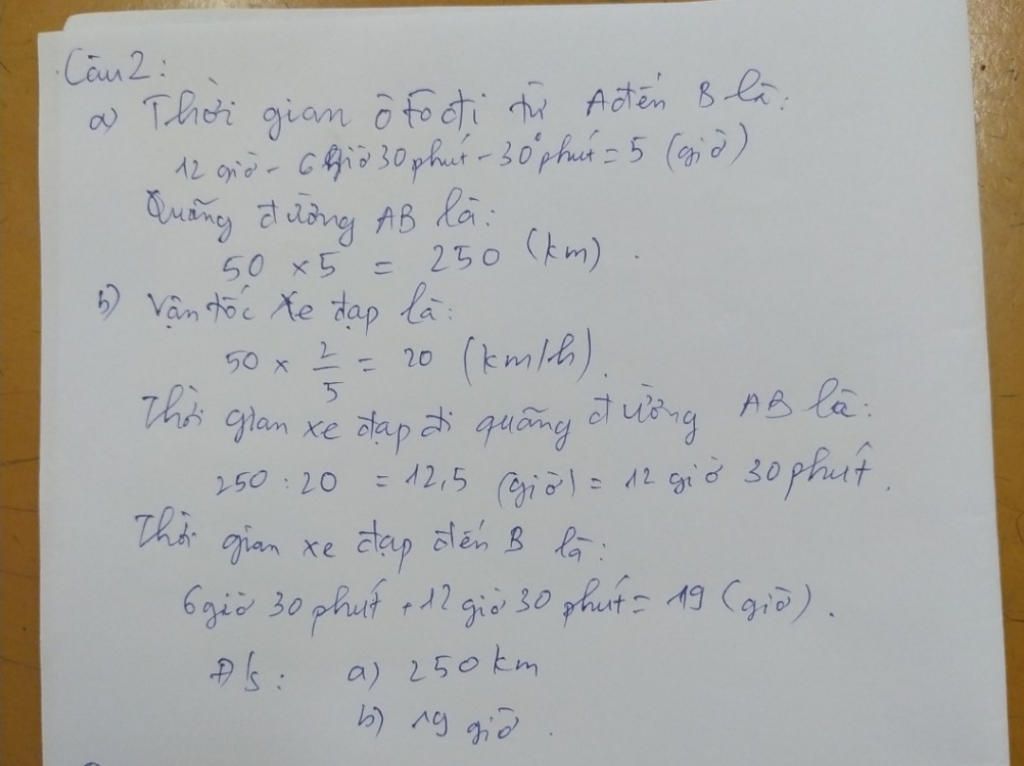 Câu 2:
a) Thời gian ô tô đi từ A đến B là:
12 giờ - 6 giờ 30 phút - 30 phút = 5 (giờ)
Quãng đường AB là:
50 x 5 = 250 (km).
b) Vận tốc xe đạp là:
50 x 2/5 = 20 (km/h).
Thời gian xe đạp đi quãng đường AB là:
250 : 20 = 12,5 (giờ) = 12 giờ 30 phút.
Thời gian xe đạp đến B là:
6 giờ 30 phút + 12 giờ 30 phút = 19 (giờ).
Đ/s: a) 250 km
b) 19 giờ.